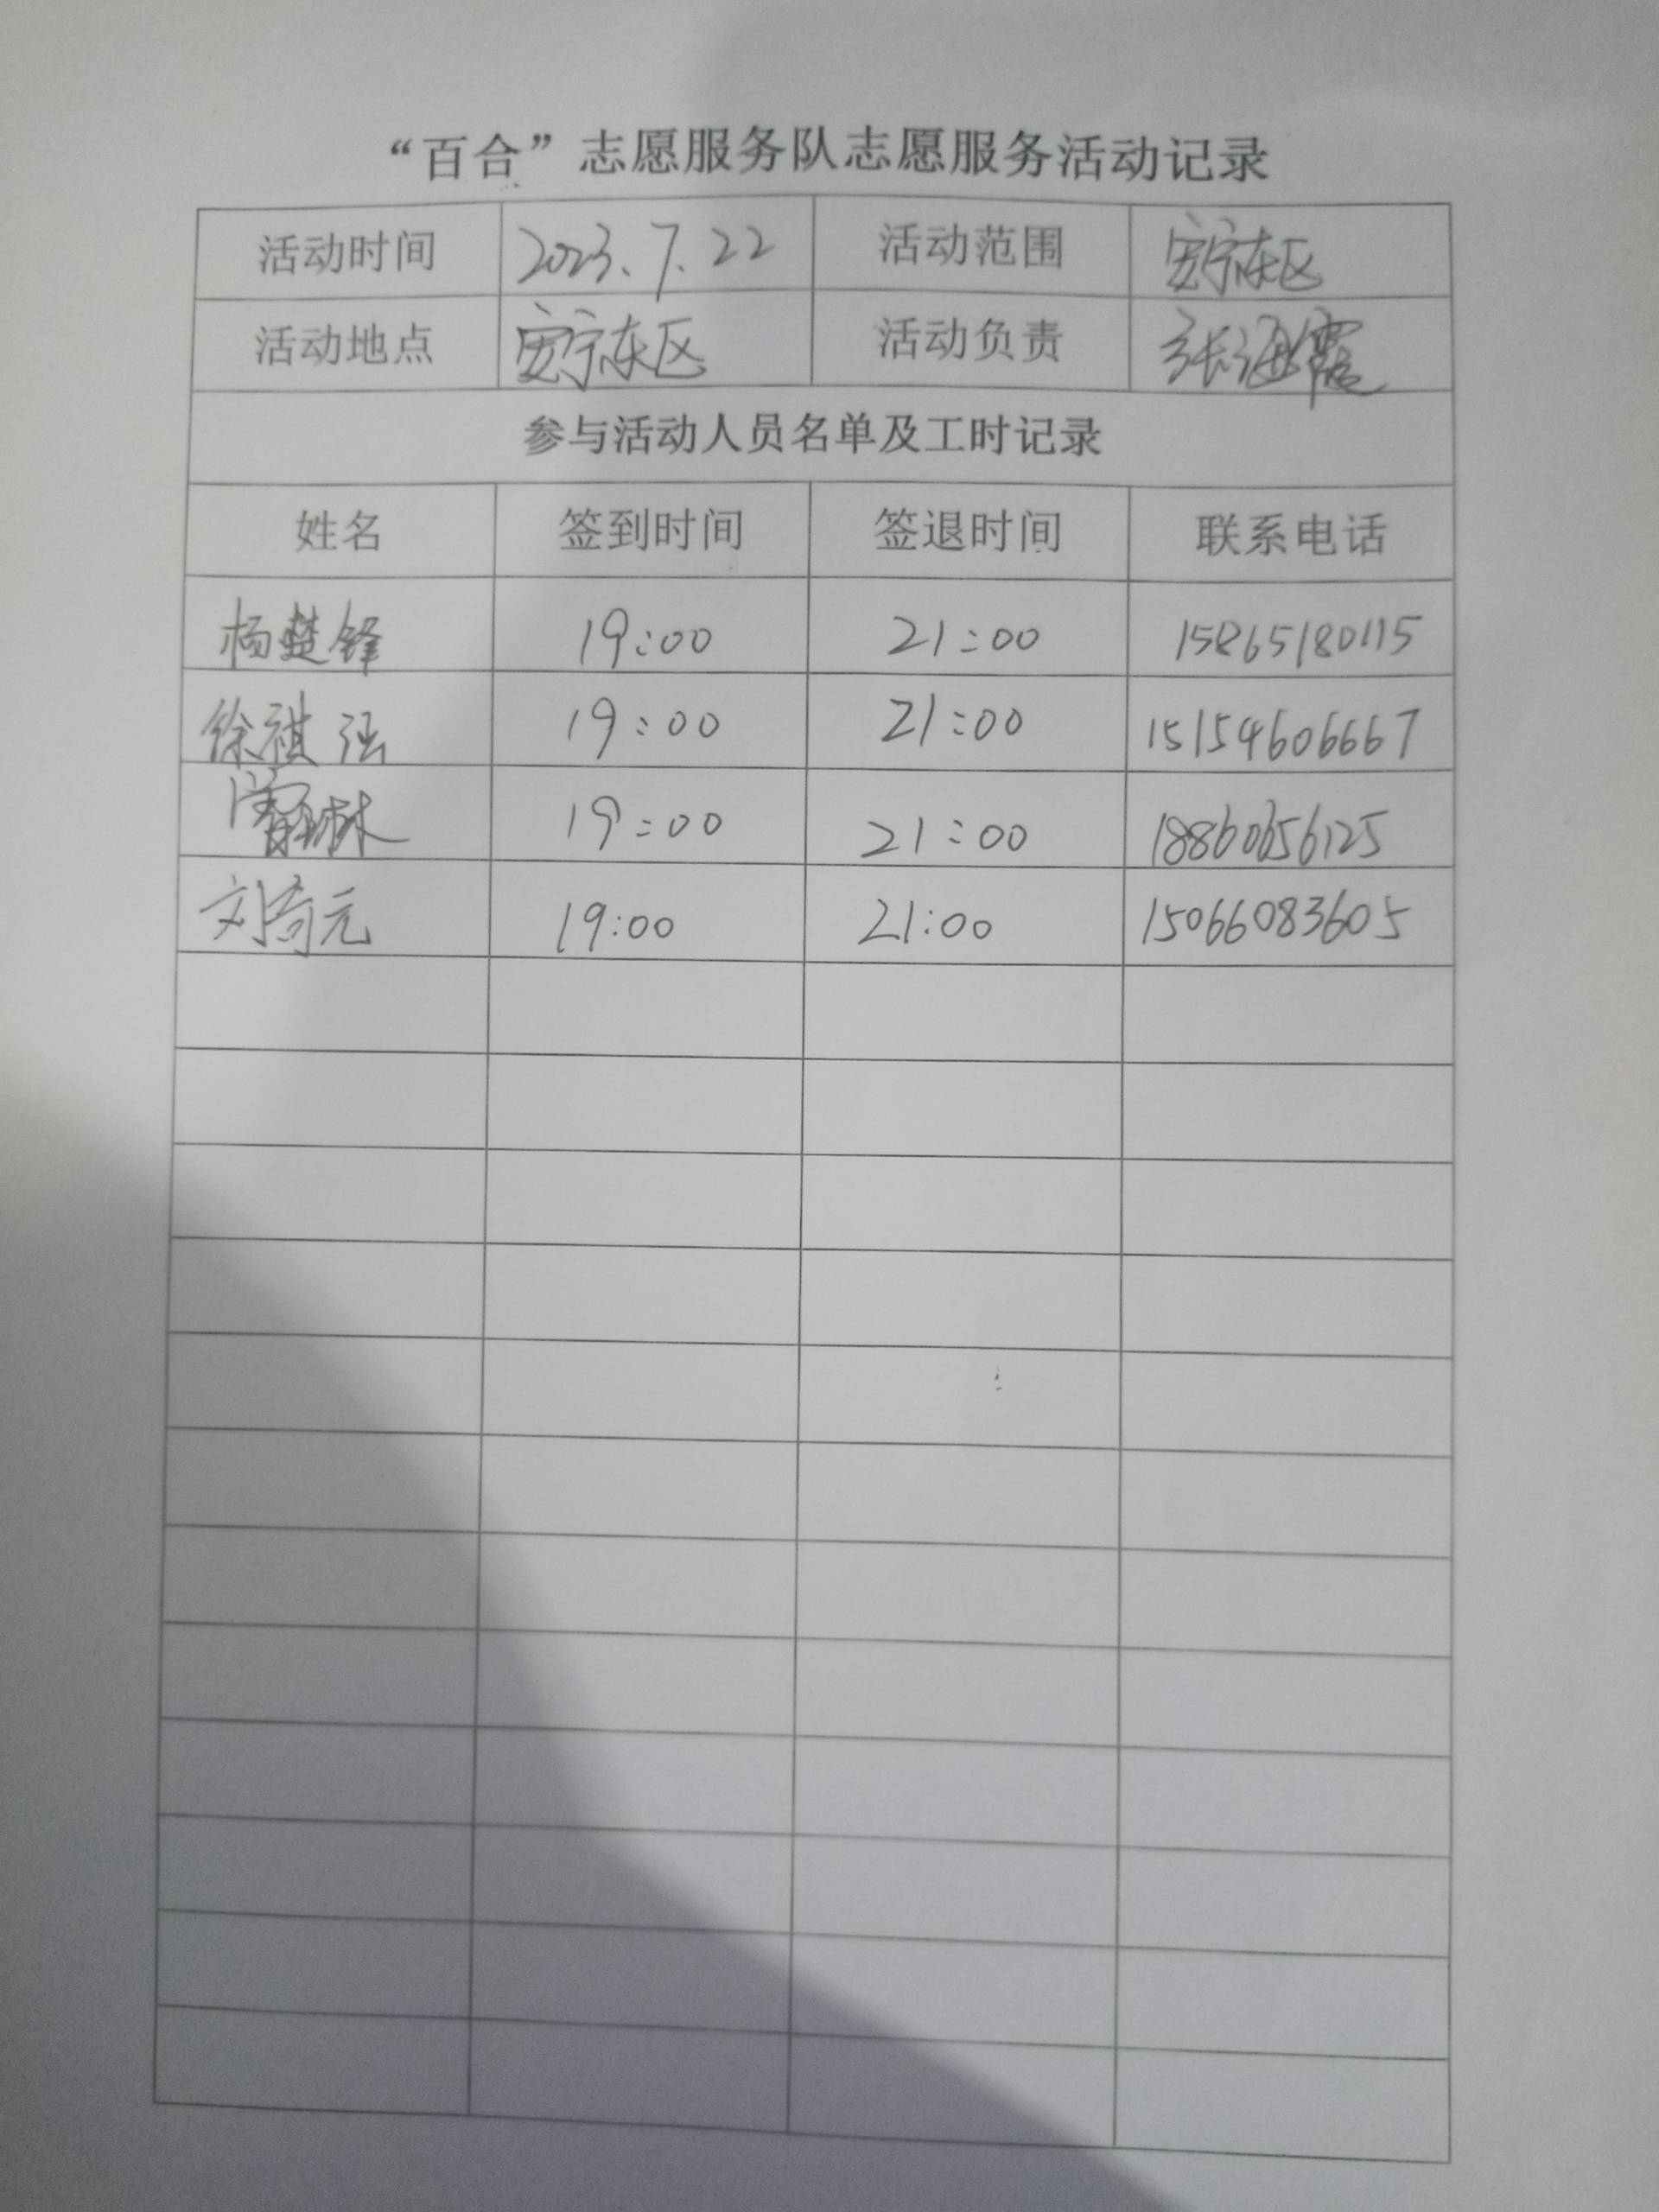 “百合”志愿服务队志愿服务活动记录
活动时间 2023.7.22 活动范围 安宁东区
活动地点 安宁东区 活动负责 张海霞
参与活动人员名单及工时记录
姓名 签到时间 签退时间 联系电话
杨楚锋 19:00 21:00 15865180115
徐祺强 19:00 21:00 15154606667
19:00 21:00 18860656125
刘奇元 19:00 21:00 15066083605